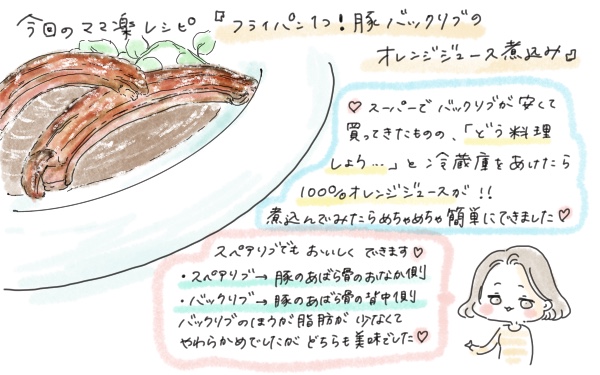 今回のママ楽レシピ『フライパン1つ！豚バックリブの
オレンジジュース煮込み』
♡スーパーでバックリブが安くて
買ってきたものの、「どう料理
しよう…」と冷蔵庫をあけたら
100%オレンジジュースが!!
煮込んでみたらめちゃめちゃ簡単にできました♡
スペアリブでもおいしくできます♡
・スペアリブ→豚のあばら骨のおなか側
・バックリブ→豚のあばら骨の背中側
バックリブのほうが脂肪が少なくて
やわらかめでしたがどちらも美味でした♡